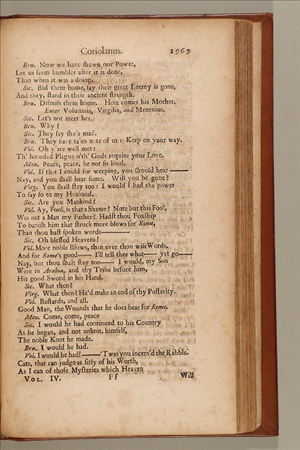 Coriolanus. 1969
Bru. Now we have shewn our Power,
Let us seem humbler after it is done,
Than when it was a doing.
Sic. Bid them home, say their great Enemy is gone,
And they, stand in their ancient strength.
Bru. Dismiss them home. Here comes his Mother.
Enter Volumnia, Virgilia, and Menenius.
Sic. Let's not meet her.
Bru. Why?
Sic. They say she's mad.
Bru. They have ta'en note of us: Keep on your way.
Vol. Oh y'are well met:
Th' hoorded Plague o'th' Gods requite your Love.
Men. Peace, peace, be not so loud.
Vol. If that I could for weeping, you should hear——
Nay, and you shall hear some. Will you be gone?
Virg. You shall stay too: I would I had the power
To say so to my Husband.
Sic. Are you Mankind?
Vol. Ay, Fool, is that a Shame? Note but this Fool,
Was not a Man my Father? Hadst thou Foxship
To banish him that struck more blows for Rome,
Than thou hast spoken words——
Sic. Oh blessed Heavens!
Vol. More noble Blows, than ever thou wise Words.
And for Rome's good—— I'll tell thee what—— yet go——
Nay, but thou shalt stay too—— I would my Son
Were in Arabia, and thy Tribe before him,
His good Sword in his Hand.
Sic. What then?
Virg. What then? He'd make an end of thy Posterity.
Vol. Bastards, and all.
Good Man, the Wounds that he does bear for Rome.
Men. Come, come, peace
Sic. I would he had continued to his Country
As he began, and not unknit, himself,
The noble Knot he made.
Bru. I would he had.
Vol. I would he had!——'Twas you incens'd the Rabble.
Cats, that can judge as fitly of his Worth,
As I can of those Mysteries which Heaven
VOL. IV. Ff Will